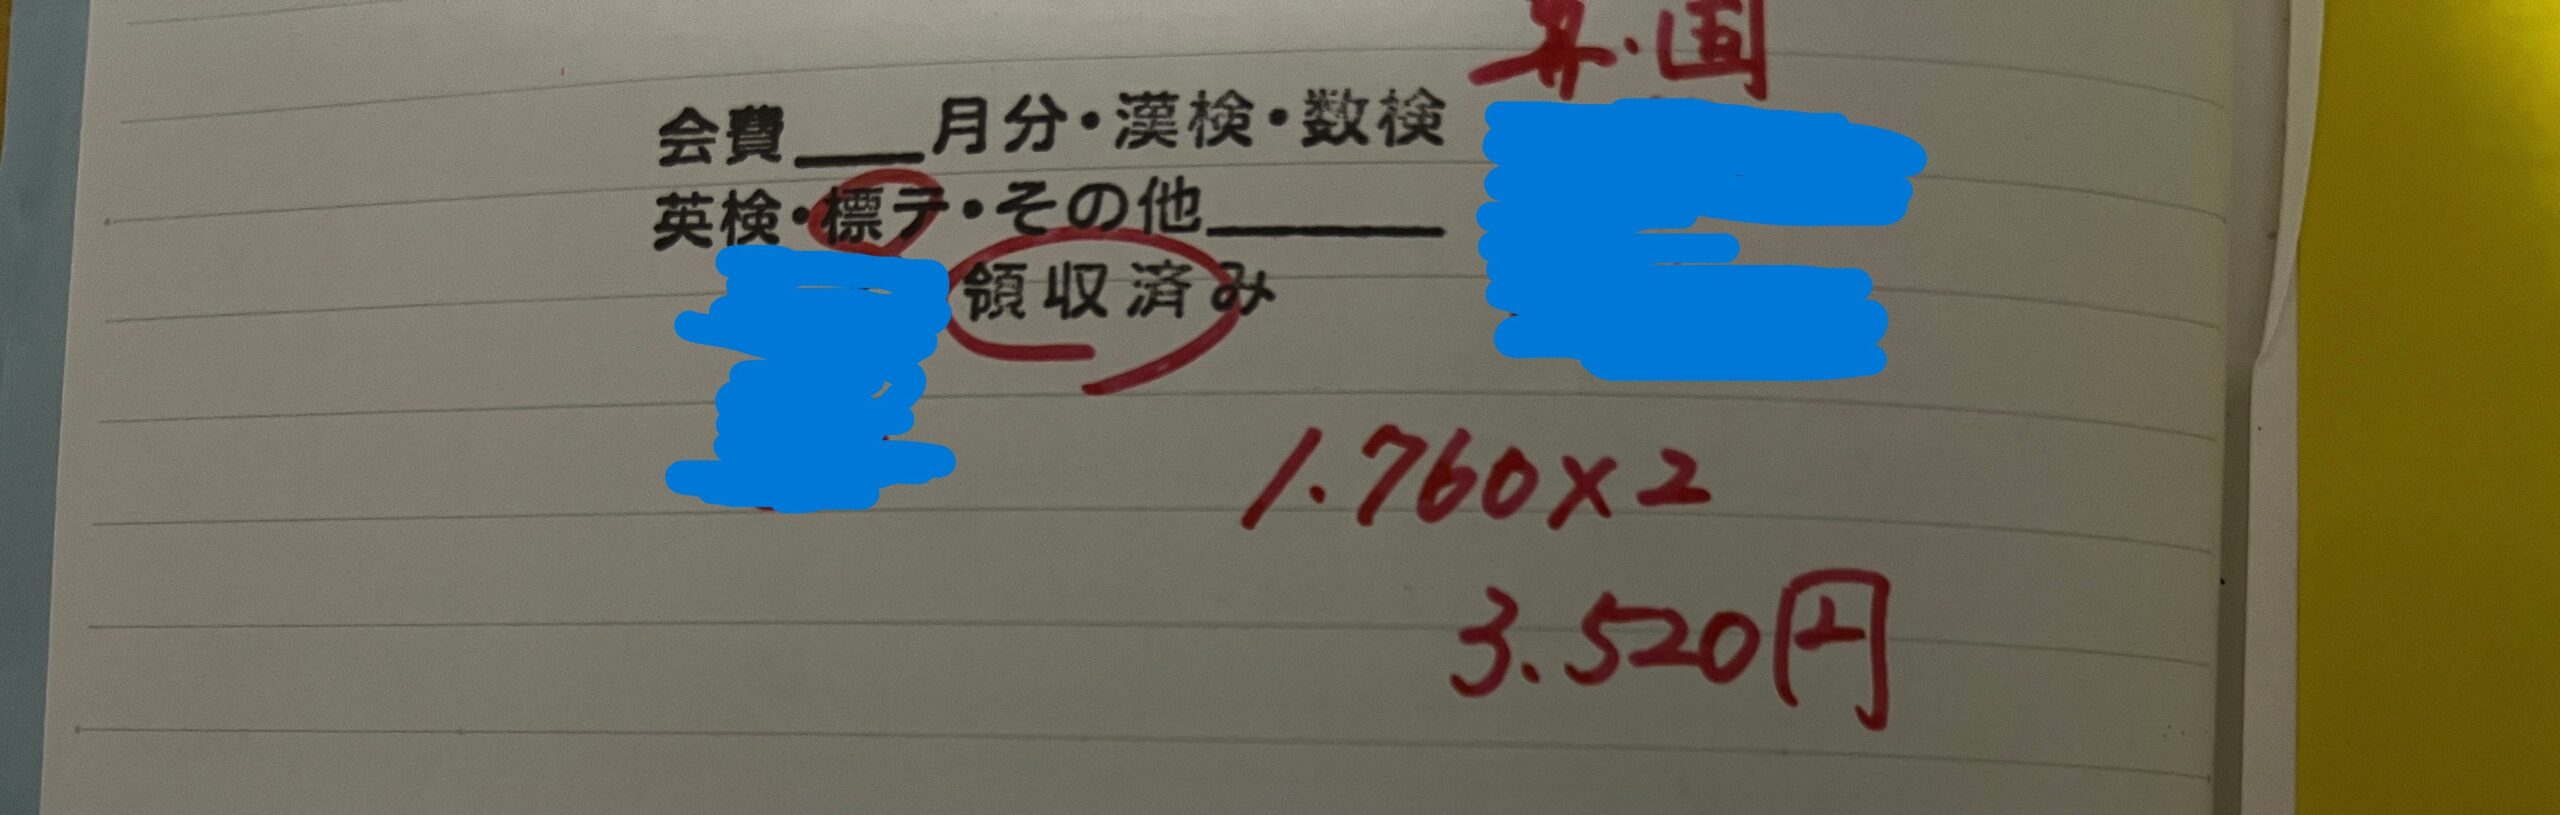 算・国
会費____月分・漢検・数検
英検・標テ・その他________
領収済み
1.760×2
3.520円